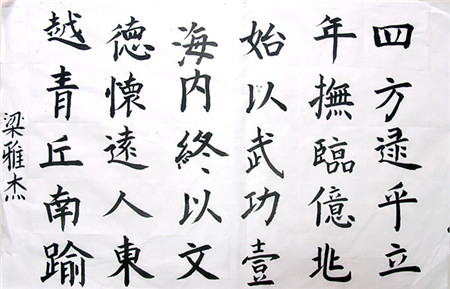 四方逮乎立
年撫臨億兆
始以武功壹
海内終以文
德懷遠人東
越青丘南踰
梁雅杰